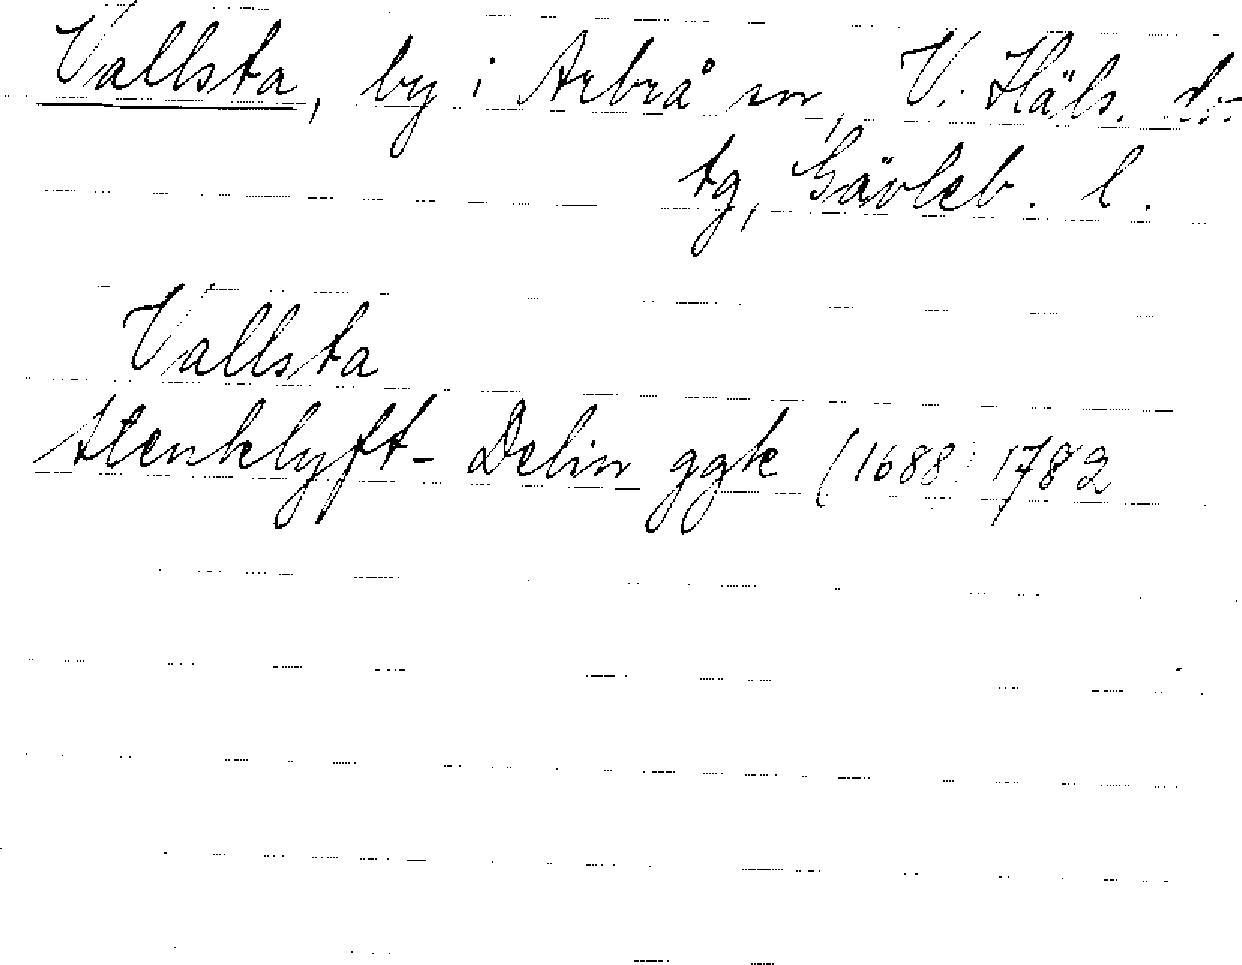 Vallsta, by i Arbrå sn, V. Häls. d:s
tg, Gävleb. l.
Vallsta
Stenklyft- Delin ggk (1688) 1782